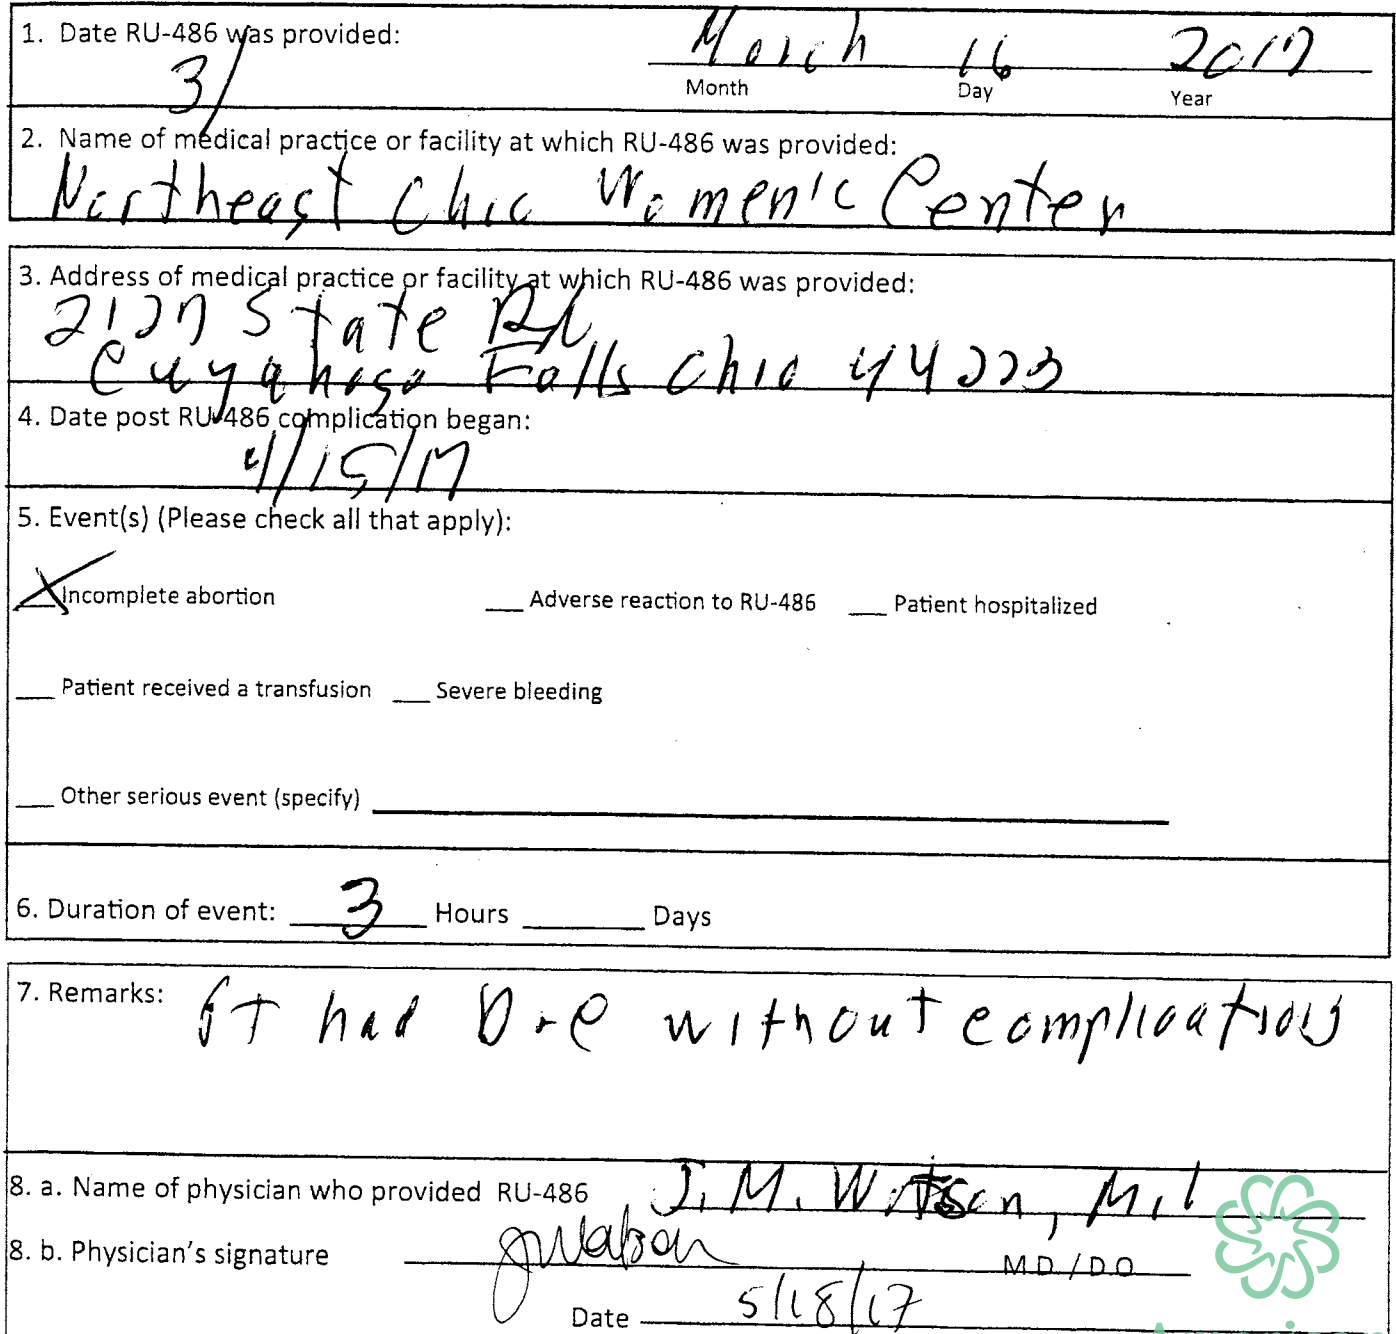 1. Date RU-486 was provided:
March 16 2017
3/
Month Day Year
2. Name of medical practice or facility at which RU-486 was provided:
Northeast Ohio Women's Center
3. Address of medical practice or facility at which RU-486 was provided:
2127 State Rd
Cuyahoga Falls Ohio 44223
4. Date post RU-486 complication began:
4/15/17
5. Event(s) (Please check all that apply):
X Incomplete abortion ___ Adverse reaction to RU-486 ___ Patient hospitalized
___ Patient received a transfusion ___ Severe bleeding
___ Other serious event (specify)
6. Duration of event: 3 Hours ______ Days
7. Remarks: PT had D+C without complications
8. a. Name of physician who provided RU-486 J. M. Watson, M.D
8. b. Physician's signature JWatson M.D./D.O.
Date 5/18/17